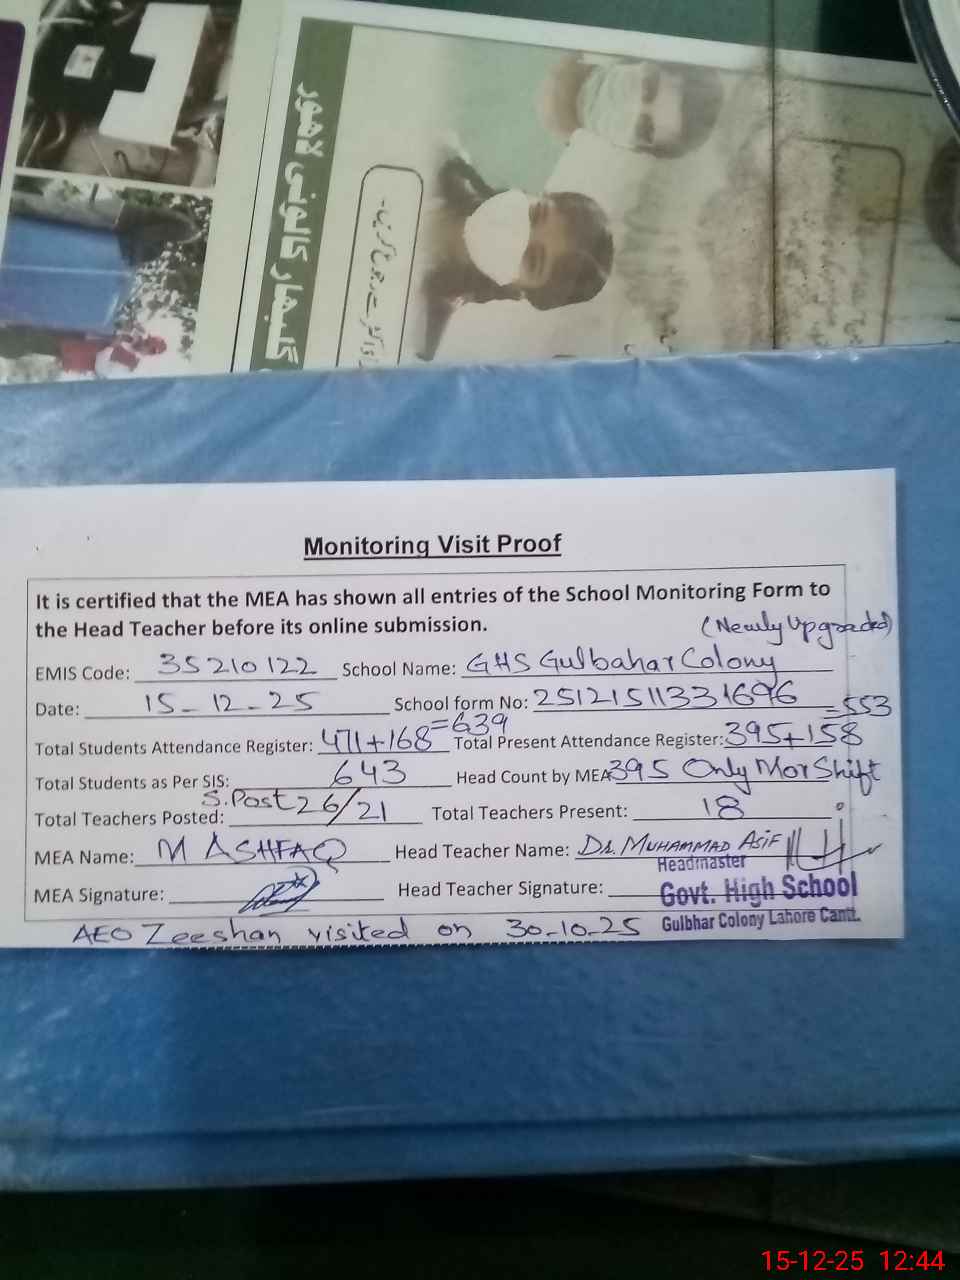 گلبهار کالونی لاہور
Monitoring Visit Proof
It is certified that the MEA has shown all entries of the School Monitoring Form to
the Head Teacher before its online submission.
(Newly Upgraded)
EMIS Code: 35210122 School Name: GHS Gulbahar Colony
Date: 15-12-25 School form No: 25121511331696
Total Students Attendance Register: 471+168=639 Total Present Attendance Register: 395+158=553
Total Students as Per SIS: 643 Head Count by MEA 395 Only Mor Shift
Total Teachers Posted: S.Post 26/21 Total Teachers Present: 18
MEA Name: M ASHFAQ Head Teacher Name: Dr. MUHAMMAD ASIF
MEA Signature: Head Teacher Signature:
Headmaster
Govt. High School
Gulbhar Colony Lahore Cantt.
AEO Zeeshan visited on 30-10-25
15-12-25 12:44